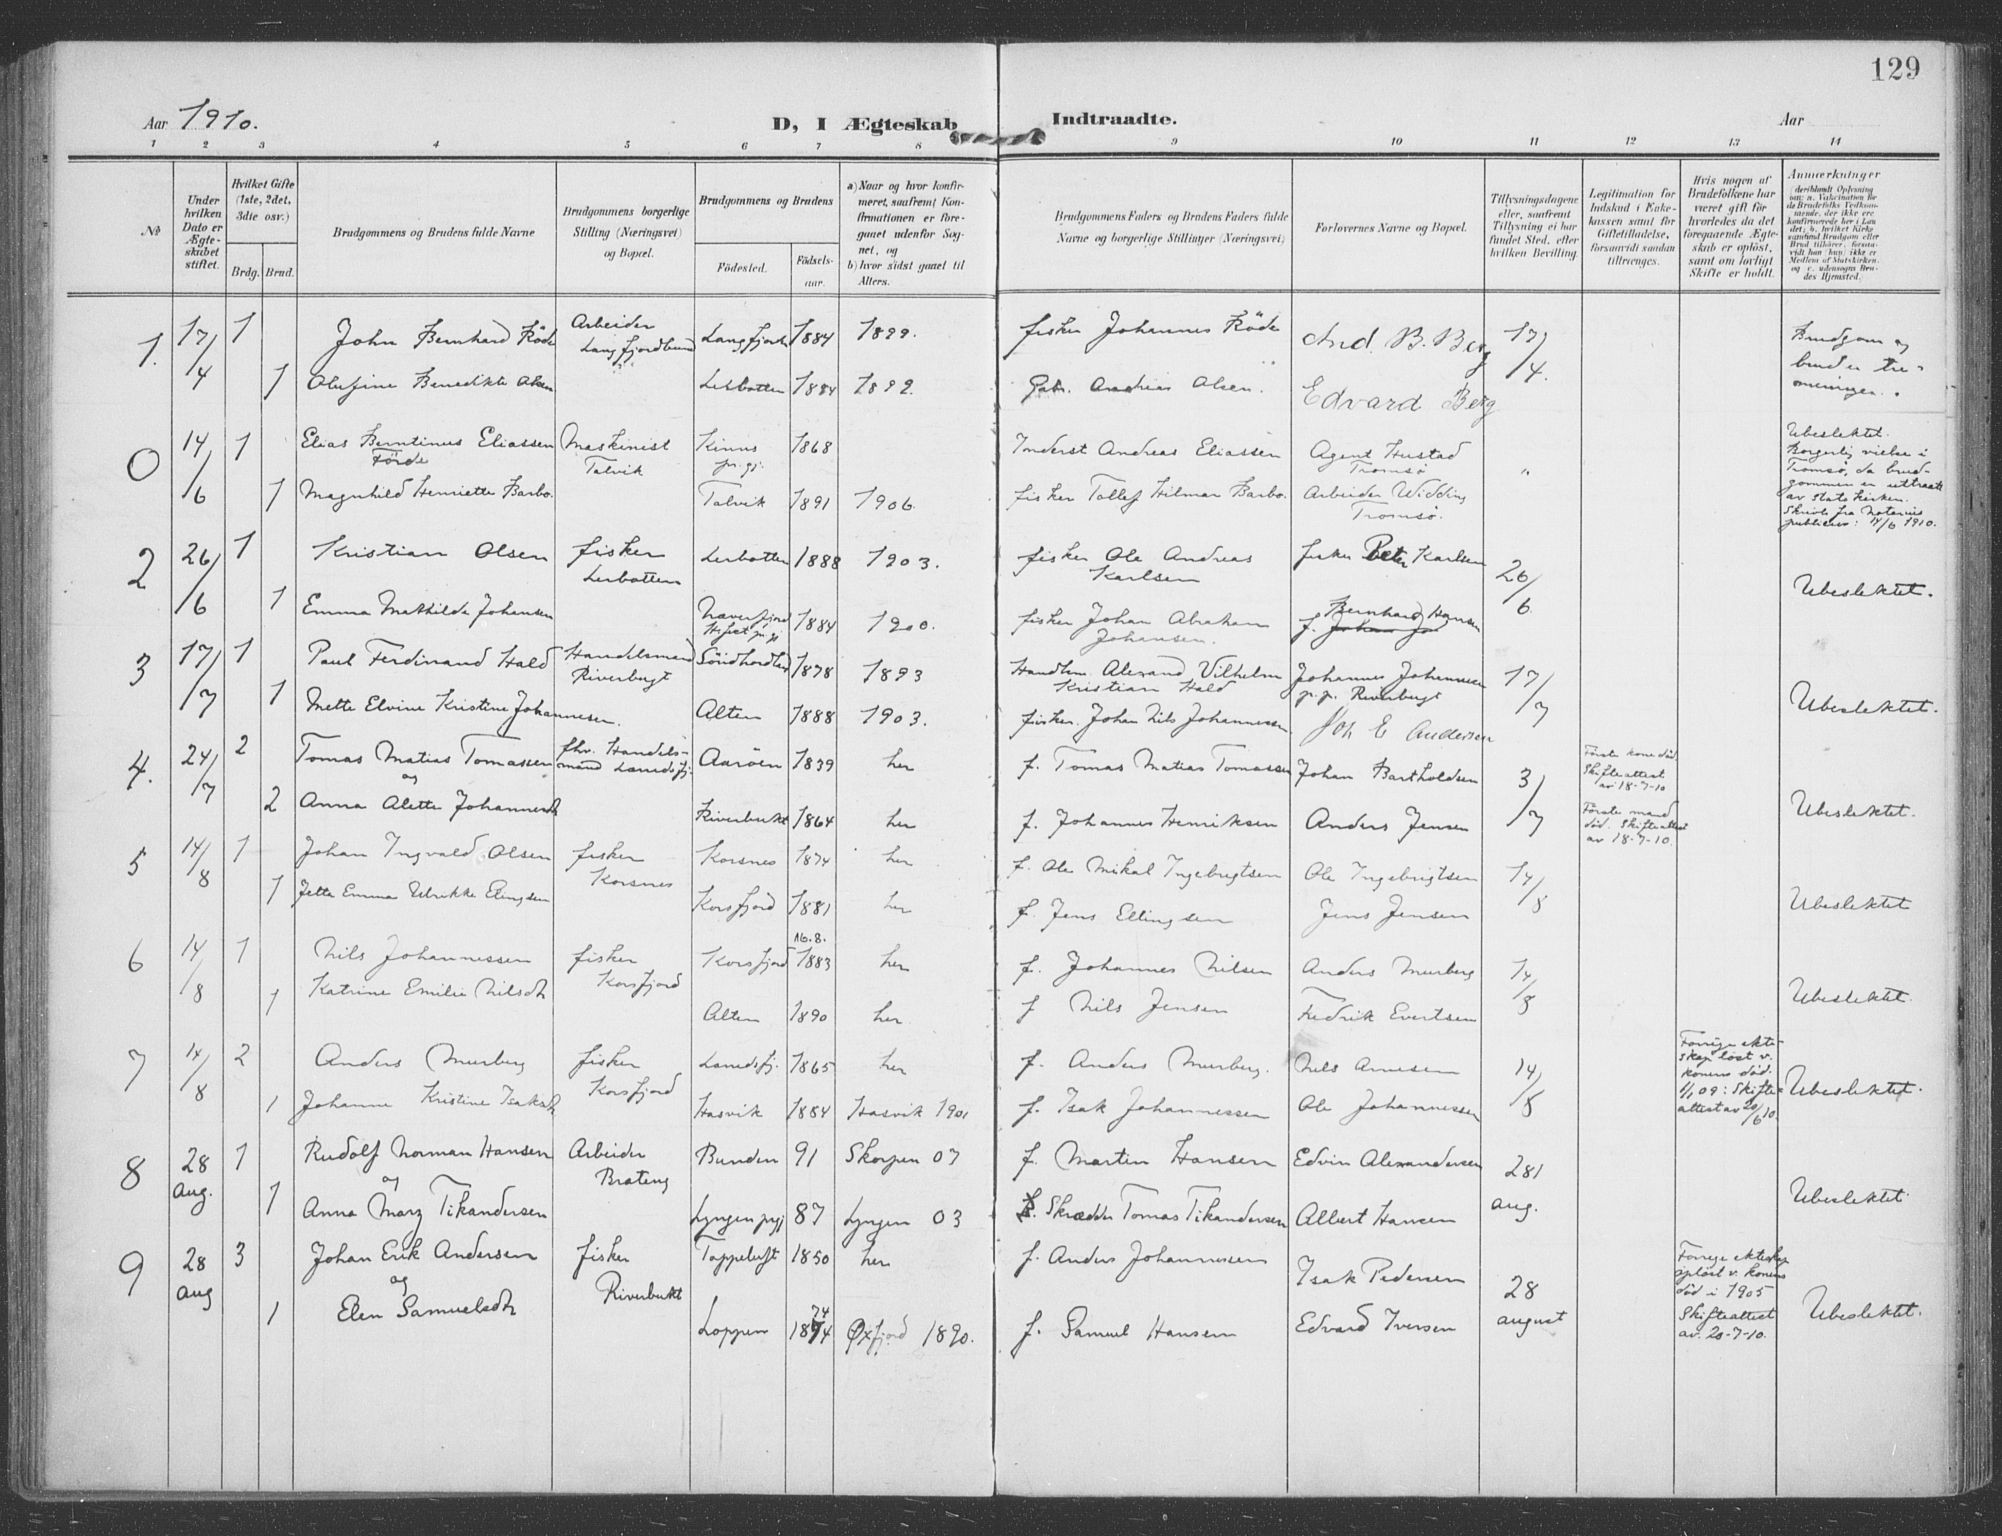 129
Aar 1910.
D, I Ægteskab Indtraadte.
Aar
1 2 3 4 5 6 7 8 9 10 11 12 13 14
№
Under hvilken Dato er Ægteskabet stiftet.
Hvilket Gifte (1ste, 2det, 3die osv.)
Brdg. Brud.
Brudgommens og Brudens fulde Navne
Brudgommens borgerlige Stilling (Næringsvei) og Bopæl.
Brudgommens og Brudens
Födested. Födselsaar.
a) Naar og hvor konfirmeret, saafremt Konfirmationen er foregaaet udenfor Sognet, og
b) hvor sidst gaaet til Alters.
Brudgommens Faders og Brudens Faders fulde Navne og borgerlige Stillinger (Næringsvei)
Forlovernes Navne og Bopæl.
Tillysningsdagene eller, saafremt Tillysning ei har fundet Sted, efter hvilken Bevilling.
Legitimation for Indskud i Enkekassen samt for Giftetilladelse, forsaavidt saadan tiltrænges.
Hvis nogen af Brudefolkene har været gift før hvorledes da det foregaaende Ægteskab er opløst, samt om lovligt Skifte er holdt.
Anmærkninger
1. 17/4 1 John Bernhard Röde Arbeider Langfjordbund Langfjord 1884 1899. fisker Johannes Röde And. B. Berg 17/4. Brudgom og brud er tromeninger.
1 Olufine Benedikte Olsen Lerbotten 1884 1899. Gbr. Andreas Olsen. Edvard Berg
0 14/6 1 Elias Berntinus Eliassen Förde Maskinist Talvik Kinns pr.gj. 1868 Inderst Andreas Eliassen Agent Hustad Tromsø " Ubeslektet. Borgerlig vielse i Tromsø, da brudgommen er uttraadt av statskirken. Skriv fra Notarius publicus: 14/6 1910.
1 Magnhild Henriette Barbo. Talvik 1891 1906. fisker Tollef Hilmar Barbo. Arbeider Widding Tromsø.
2 26/6 1 Kristian Olsen fisker Lerbotten Lerbotten 1888 1903. fisker Ole Andreas Karlsen fisker Peter Karlsen 26/6 Ubeslektet.
1 Emma Mathilde Johansen Næverfjord 1884 1900. fisker Johan Abraham Johansen. f. Bernhard Hansen
3 17/7 1 Paul Ferdinand Hald Handelsmand Riverbugt Söndhordland 1878 1893 Handlsm. Alexand Vilhelm Kristian Hald Johannes Johannesen p.p. Riverbugt 17/7 Ubeslektet.
1 Mette Elvine Kristine Johannesen. Alten 1888 1903. fisker. Johan Nils Johannessen Joh E Andersen
4. 24/7 2 Tomas Matias Tomassen og fhv. Handelsmand Aaröen 1839 her f. Tomas Matias Tomassen Johan Bartholdsen 3/7 Første kone död. Skifteattest av 18-7-10 Ubeslektet.
2 Anna Alette Johannesdt Riverbukt 1864 her f. Johannes Henriksen Anders Jensen Første mand död. Skifteattest av 18-7-10.
5 14/8 1 Johan Ingvald Olsen fisker Korsnes Korsnes 1874 her f. Ole Mikal Ingebrigtsen Ole Ingebrigtsen 14/8 Ubeslektet
1 Jette Emma Ulrikke Elingsen Korsfjord 1881 her f. Jens Ellingsen Jens Jensen
6 14/8 1 Nils Johannessen fisker Korsfjord Korsfjord 16.8. 1883 her f. Johannes Nilsen Anders Murberg 14/8 Ubeslektet.
1 Katrine Emilie Nilsdt Alten 1890 her f Nils Jensen Fredrik Evertsen
7 14/8 2 Anders Murberg fisker Korsfjord 1865 her f. Anders Murberg. Nils Arnesen 14/8 Forrige ekteskap löst v. konens död. 1/1 09: Skifteattest av 20/6 10. Ubeslektet.
1 Johanne Kristine Isaksdt Hasvik 1884 Hasvik 1901 f. Isak Johannessen Ole Johannessen
8 28 Aug. 1 Rudolf Norman Hansen og Arbeider Brateng Bunden 91 Skorpen 07 f. Martin Hansen Edvin Alexandersen 28/ aug. Ubeslektet
1 Anna Mary Tikandersen Lyngen pgj 87 Lyngen 03 Skrædder Tomas Tikandersen Albert Hansen
9 28 aug 3 Johan Erik Andersen og fisker Riverbukt Toppelbugt 1850 her f. Anders Johannessen Isak Pedersen 28 august Forrige ekteskap oplöst v. konens död i 1905 Skifteattest av. 20-7-10. Ubeslektet.
1 Elen Samuelsdt Loppen 1874 74 Öxfjord 1890. f. Samuel Hansen Edvard Iversen